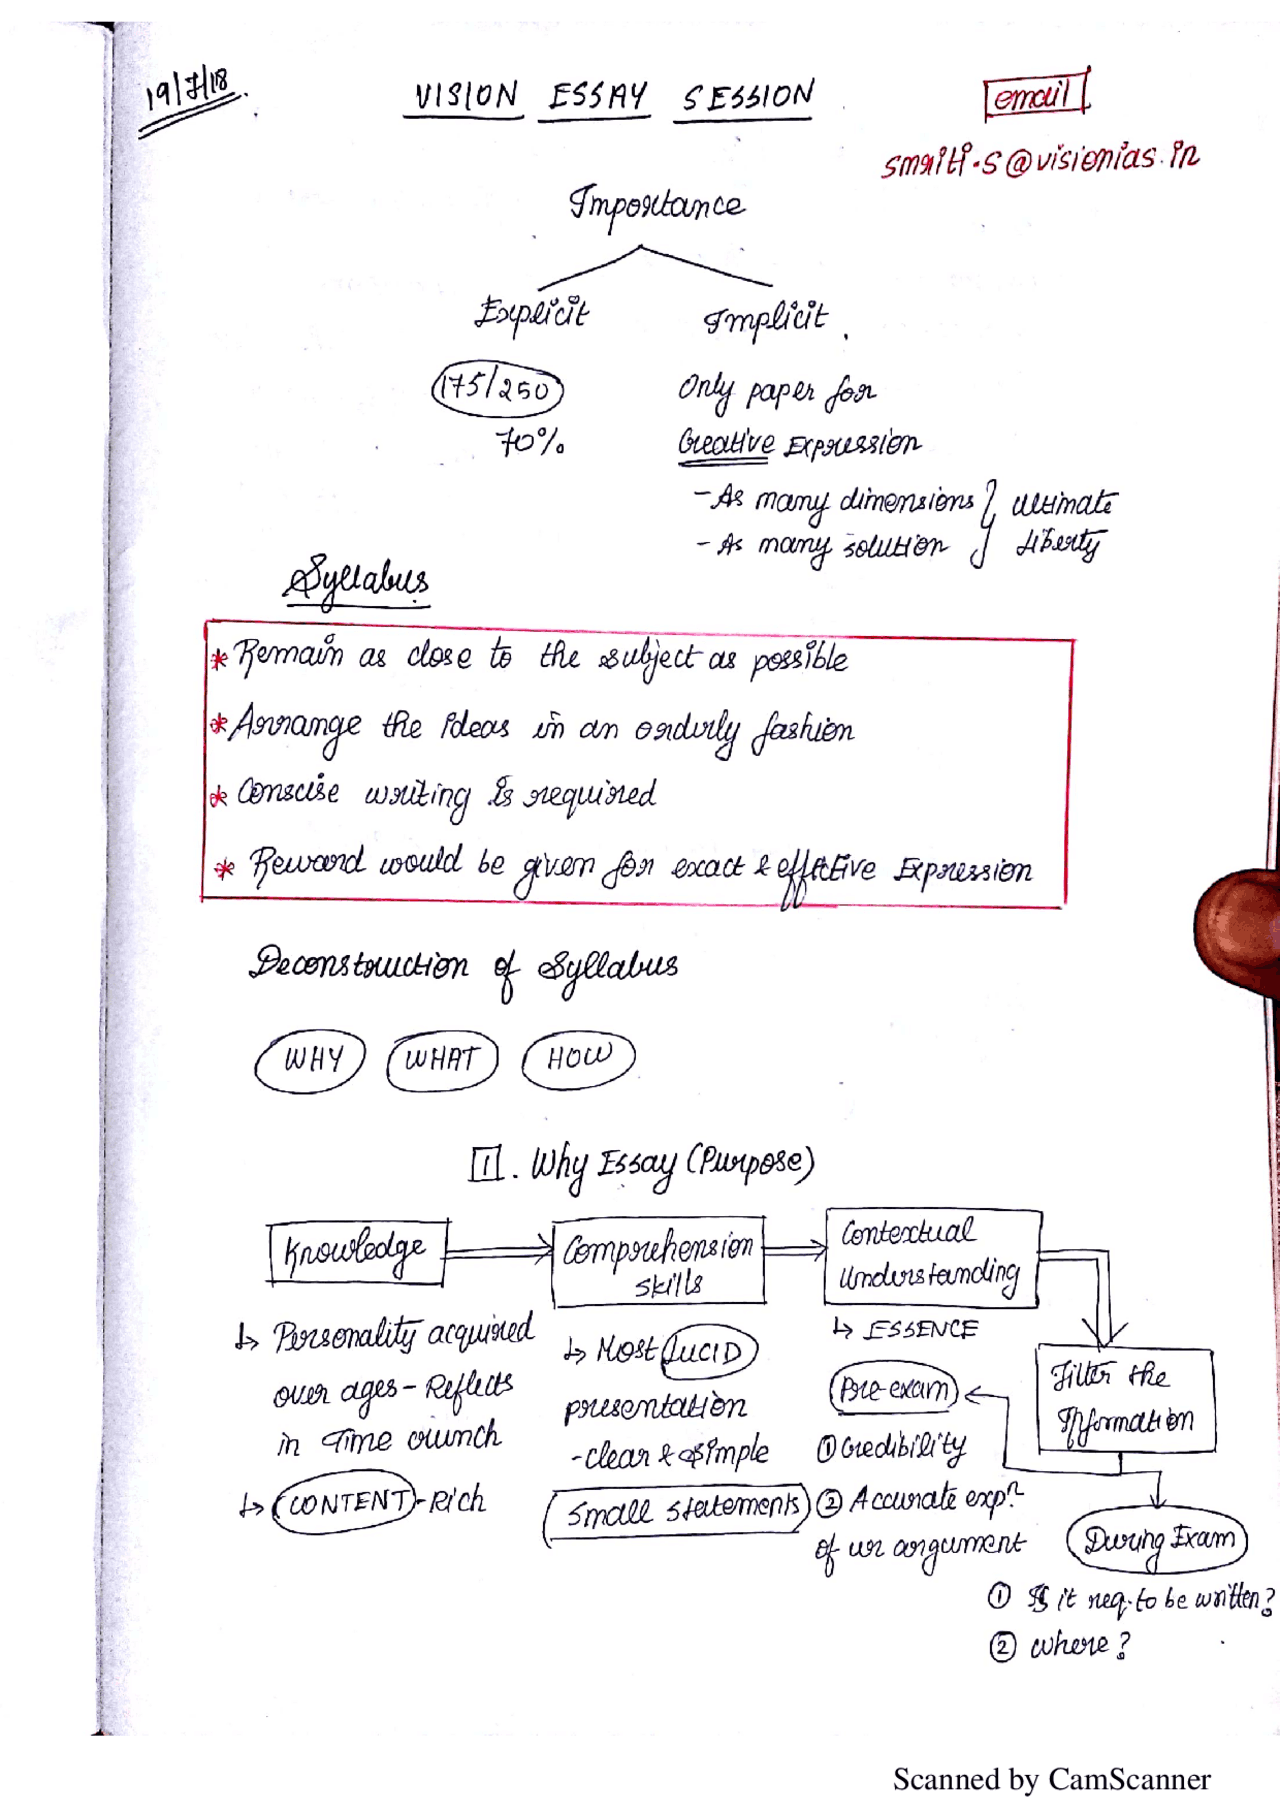 19/7/18
VISION ESSAY SESSION
email
smriti.s@visionias.in
Importance
Explicit
Implicit
175/250
Only paper for
70%
Creative Expression
- As many dimensions } ultimate
- As many solution } liberty
Syllabus
* Remain as close to the subject as possible
* Arrange the ideas in an orderly fashion
* Conscise writing is required
* Reward would be given for exact & effective Expression
Deconstruction of Syllabus
WHY WHAT HOW
1. Why Essay (Purpose)
Knowledge
Comprehension
skills
Contextual
Understanding
↳ Personality acquired
over ages - Reflects
in Time crunch
↳ CONTENT - Rich
↳ Most LUCID
presentation
- clear & simple
Small statements
↳ ESSENCE
Filter the
Information
Pre-exam
① Credibility
② Accurate expn
of ur argument
During Exam
① Is it req. to be written?
② where?
Scanned by CamScanner